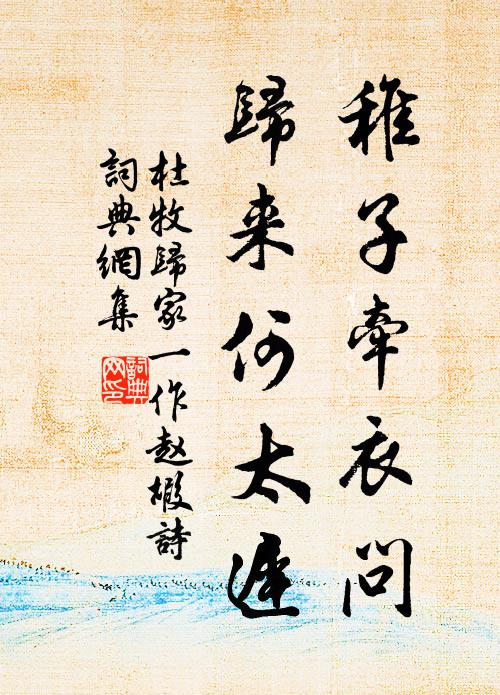 稚子牽衣問
歸来何太遲
杜牧歸家一作赵嘏詩
詞典網集
詞典网印